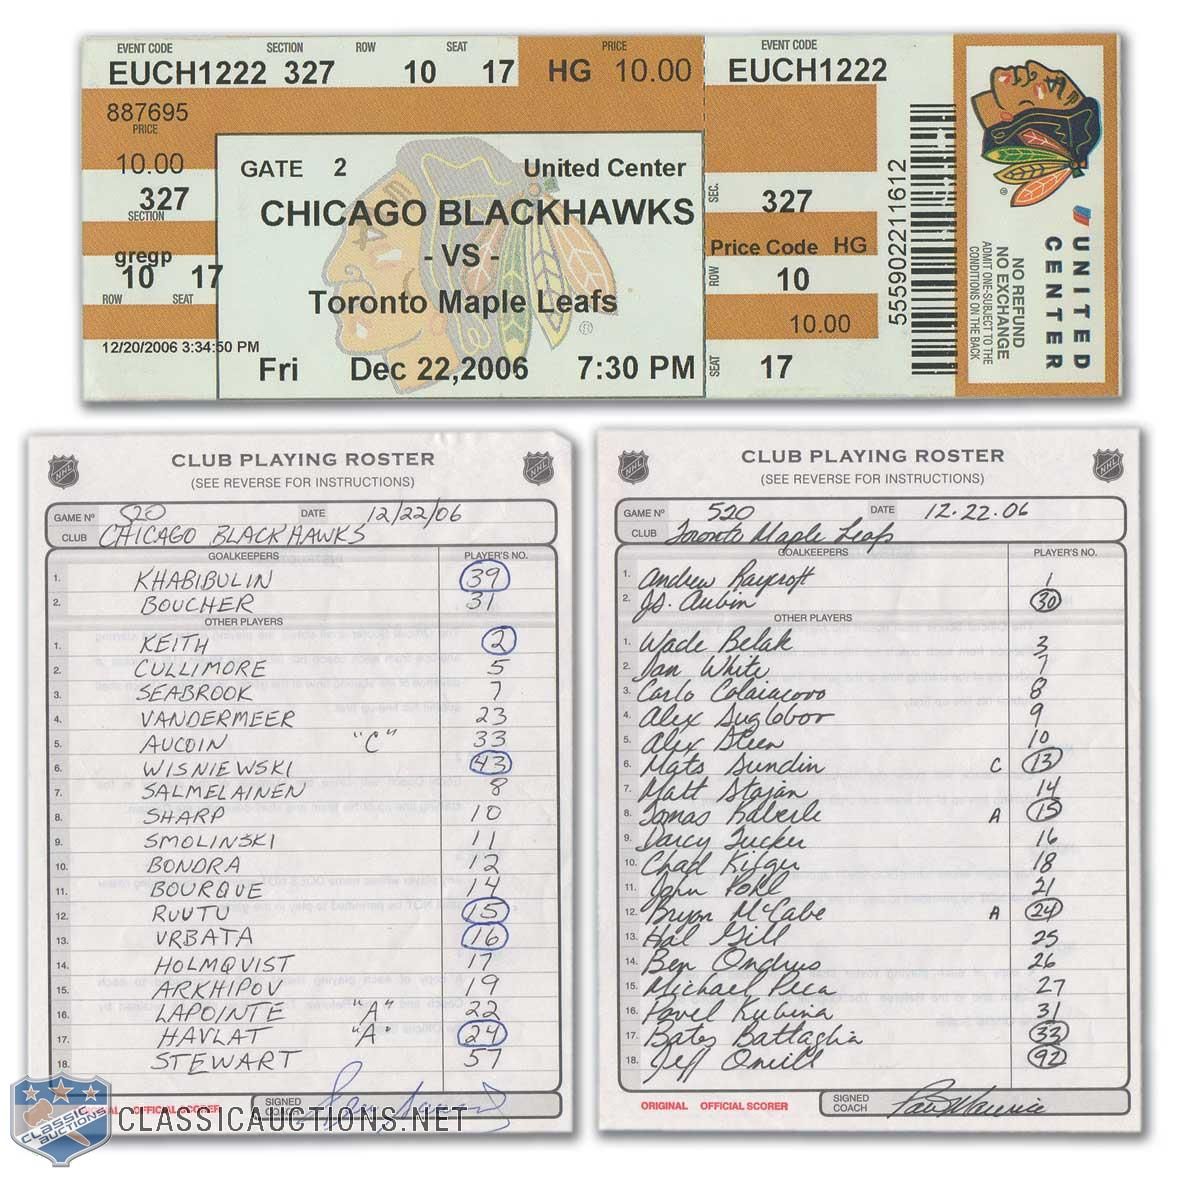 EVENT CODE SECTION ROW SEAT PRICE EVENT CODE
EUCH1222 327 10 17 HG 10.00 EUCH1222
887695
PRICE
10.00
327
SECTION
gregp
10 17
ROW SEAT
12/20/2006 3:34:50 PM
GATE 2 United Center
CHICAGO BLACKHAWKS
- VS -
Toronto Maple Leafs
®
Fri Dec 22,2006 7:30 PM
SEC. 327
Price Code HG
ROW 10
10.00
SEAT 17
5559022111612
®
UNITED
CENTER
NO REFUND
NO EXCHANGE
ADMIT ONE-SUBJECT TO THE
CONDITIONS ON THE BACK
NHL NHL
CLUB PLAYING ROSTER
(SEE REVERSE FOR INSTRUCTIONS)
GAME Nº 520 DATE 12/22/06
CLUB CHICAGO BLACKHAWKS
GOALKEEPERS PLAYER'S NO.
1. KHABIBULIN 39
2. BOUCHER 31
OTHER PLAYERS
1. KEITH 2
2. CULLIMORE 5
3. SEABROOK 7
4. VANDERMEER 23
5. AUCOIN "C" 33
6. WISNIEWSKI 43
7. SALMELAINEN 8
8. SHARP 10
9. SMOLINSKI 11
10. BONDRA 12
11. BOURQUE 14
12. RUUTU 15
13. VRBATA 16
14. HOLMQVIST 17
15. ARKHIPOV 19
16. LAPOINTE "A" 22
17. HAVLAT "A" 24
18. STEWART 57
OFFICIAL SCORER
SIGNED
COACH
CLASSIC
AUCTIONS
CLASSICAUCTIONS.NET
NHL NHL
CLUB PLAYING ROSTER
(SEE REVERSE FOR INSTRUCTIONS)
GAME Nº 520 DATE 12.22.06
CLUB Toronto Maple Leafs
GOALKEEPERS PLAYER'S NO.
1. Andrew Raycroft 1
2. JS. Aubin 30
OTHER PLAYERS
1. Wade Belak 3
2. Ian White 7
3. Carlo Colaiacovo 8
4. Alex Suglobov 9
5. Alex Steen 10
6. Mats Sundin C 13
7. Matt Stajan 14
8. Tomas Kaberle A 15
9. Darcy Tucker 16
10. Chad Kilger 18
11. John Pohl 21
12. Bryan McCabe A 24
13. Hal Gill 25
14. Ben Ondrus 26
15. Michael Peca 27
16. Pavel Kubina 31
17. Bates Battaglia 33
18. Jeff Oneill 92
ORIGINAL OFFICIAL SCORER
SIGNED
COACH Paul Maurice